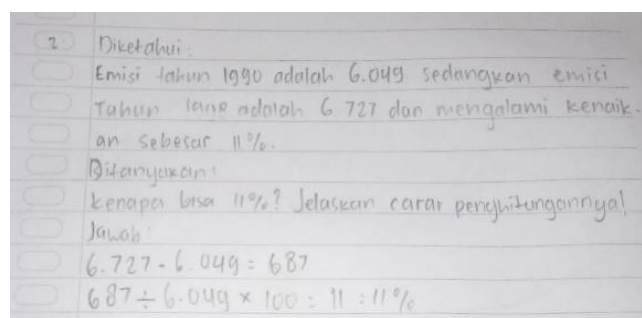 2 Diketahui:
Emisi tahun 1990 adalah 6.049 sedangkan emisi
Tahun adalah 6.727 dan mengalami kenaik-
an sebesar 11%.
Ditanyakan:
kenapa bisa 11%? Jelaskan carar penghitungannya!
Jawab:
6.727 - 6.049 = 687
687 ÷ 6.049 × 100 = 11 = 11%